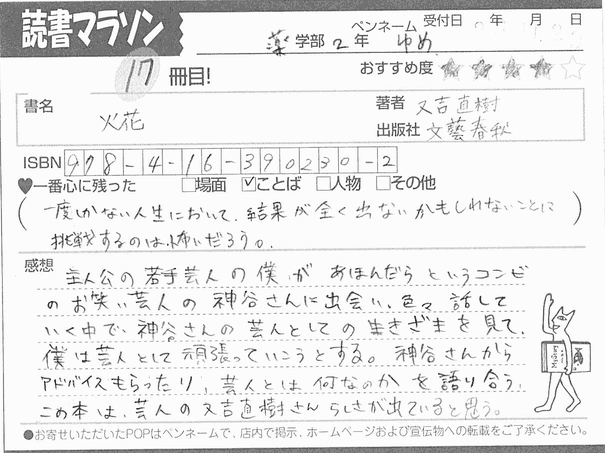 読書マラソン
ペンネーム 受付日 年 月 日
薬 学部 2 年 ゆめ
17 冊目!
おすすめ度 ★★★★☆
書名
火花
著者 又吉直樹
出版社 文藝春秋
ISBN 978-4-16-390230-2
♥一番心に残った □場面 ☑ことば □人物 □その他
(一度しかない人生において、結果が全く出ないかもしれないことに
挑戦するのは怖いだろう。)
感想
主人公の若手芸人の僕が あほんだら というコンビ
のお笑い芸人の 神谷さんに出会い、色々 話して
いく中で、神谷さんの 芸人としての 生きざまを見て、
僕は芸人として 頑張っていこうとする。 神谷さんから
アドバイスもらったり、芸人とは 何なのか を語り合う。
この本は、芸人の 又吉直樹さん らしさが出ていると思う。
●お寄せいただいたPOPはペンネームで、店内で掲示、ホームページおよび宣伝物への転載をご了承ください。